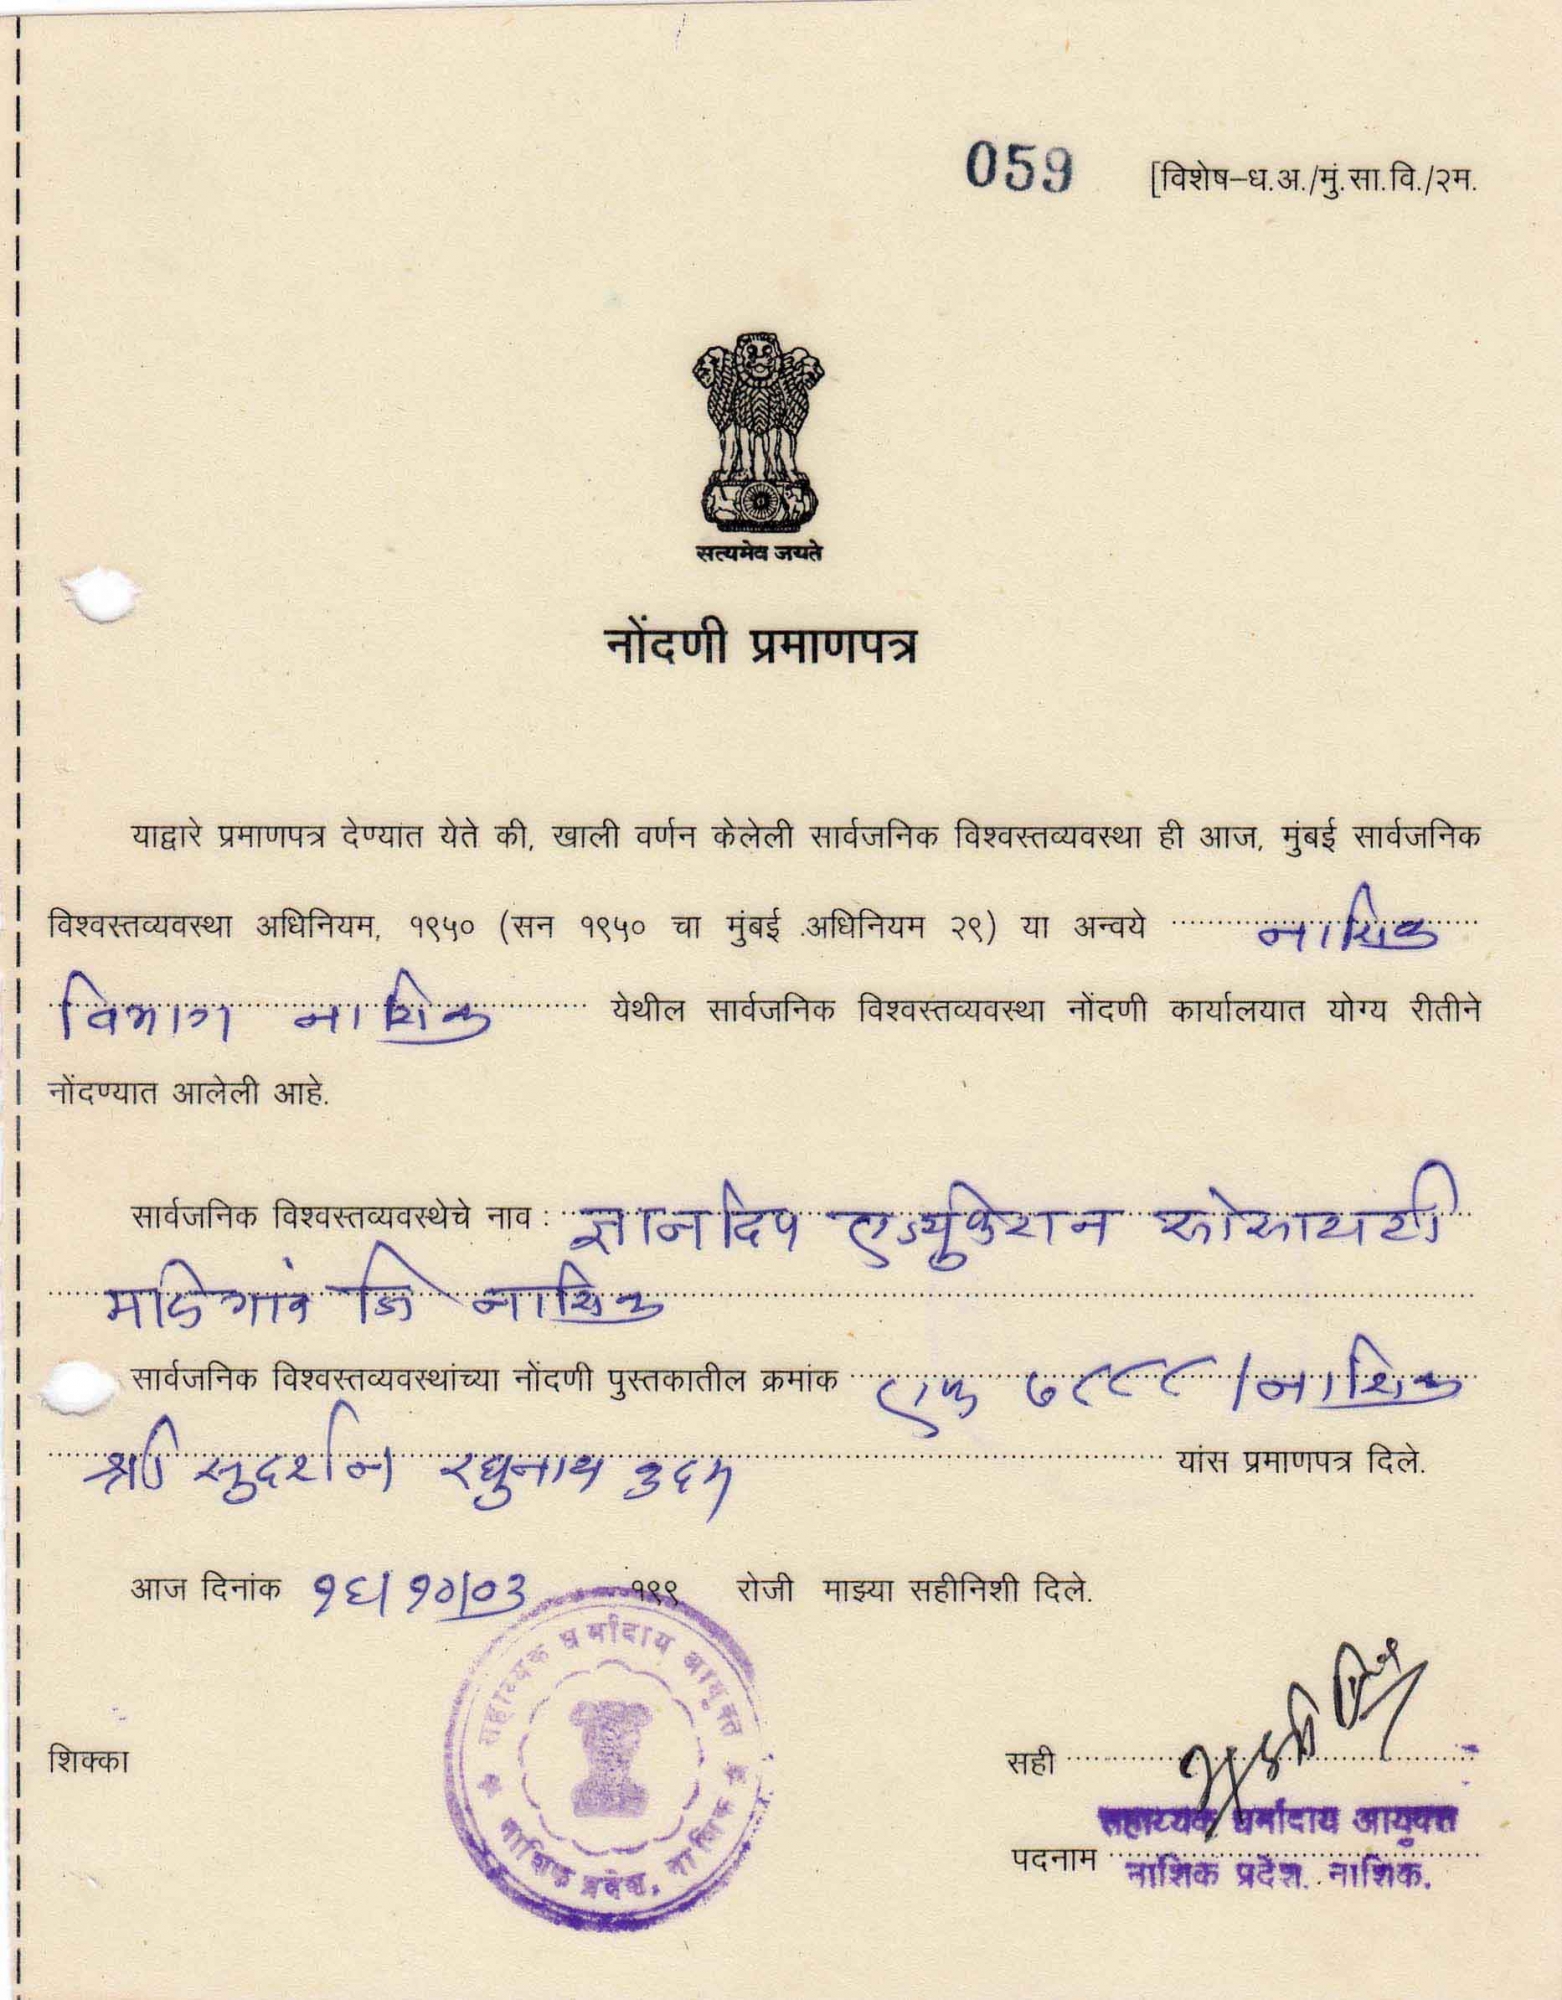 059 [विशेष–ध.अ./मुं.सा.वि./२म.
सत्यमेव जयते
नोंदणी प्रमाणपत्र
याद्वारे प्रमाणपत्र देण्यात येते की, खाली वर्णन केलेली सार्वजनिक विश्वस्तव्यवस्था ही आज, मुंबई सार्वजनिक
विश्वस्तव्यवस्था अधिनियम, १९५० (सन १९५० चा मुंबई अधिनियम २९) या अन्वये नाशिक
विभाग नाशिक येथील सार्वजनिक विश्वस्तव्यवस्था नोंदणी कार्यालयात योग्य रीतीने
नोंदण्यात आलेली आहे.
सार्वजनिक विश्वस्तव्यवस्थेचे नाव : ज्ञानदिप एज्युकेशन सोसायटी
जि नाशिक
सार्वजनिक विश्वस्तव्यवस्थांच्या नोंदणी पुस्तकातील क्रमांक एफ ७८८८/नाशिक
श्री सुदर्शन रघुनाथ यांस प्रमाणपत्र दिले.
आज दिनांक १६/१०/०३ १९९ रोजी माझ्या सहीनिशी दिले.
सहाय्यक धर्मादाय आयुक्त
नाशिक प्रदेश, नाशिक
शिक्का
सही
सहाय्यक धर्मादाय आयुक्त
पदनाम नाशिक प्रदेश. नाशिक.